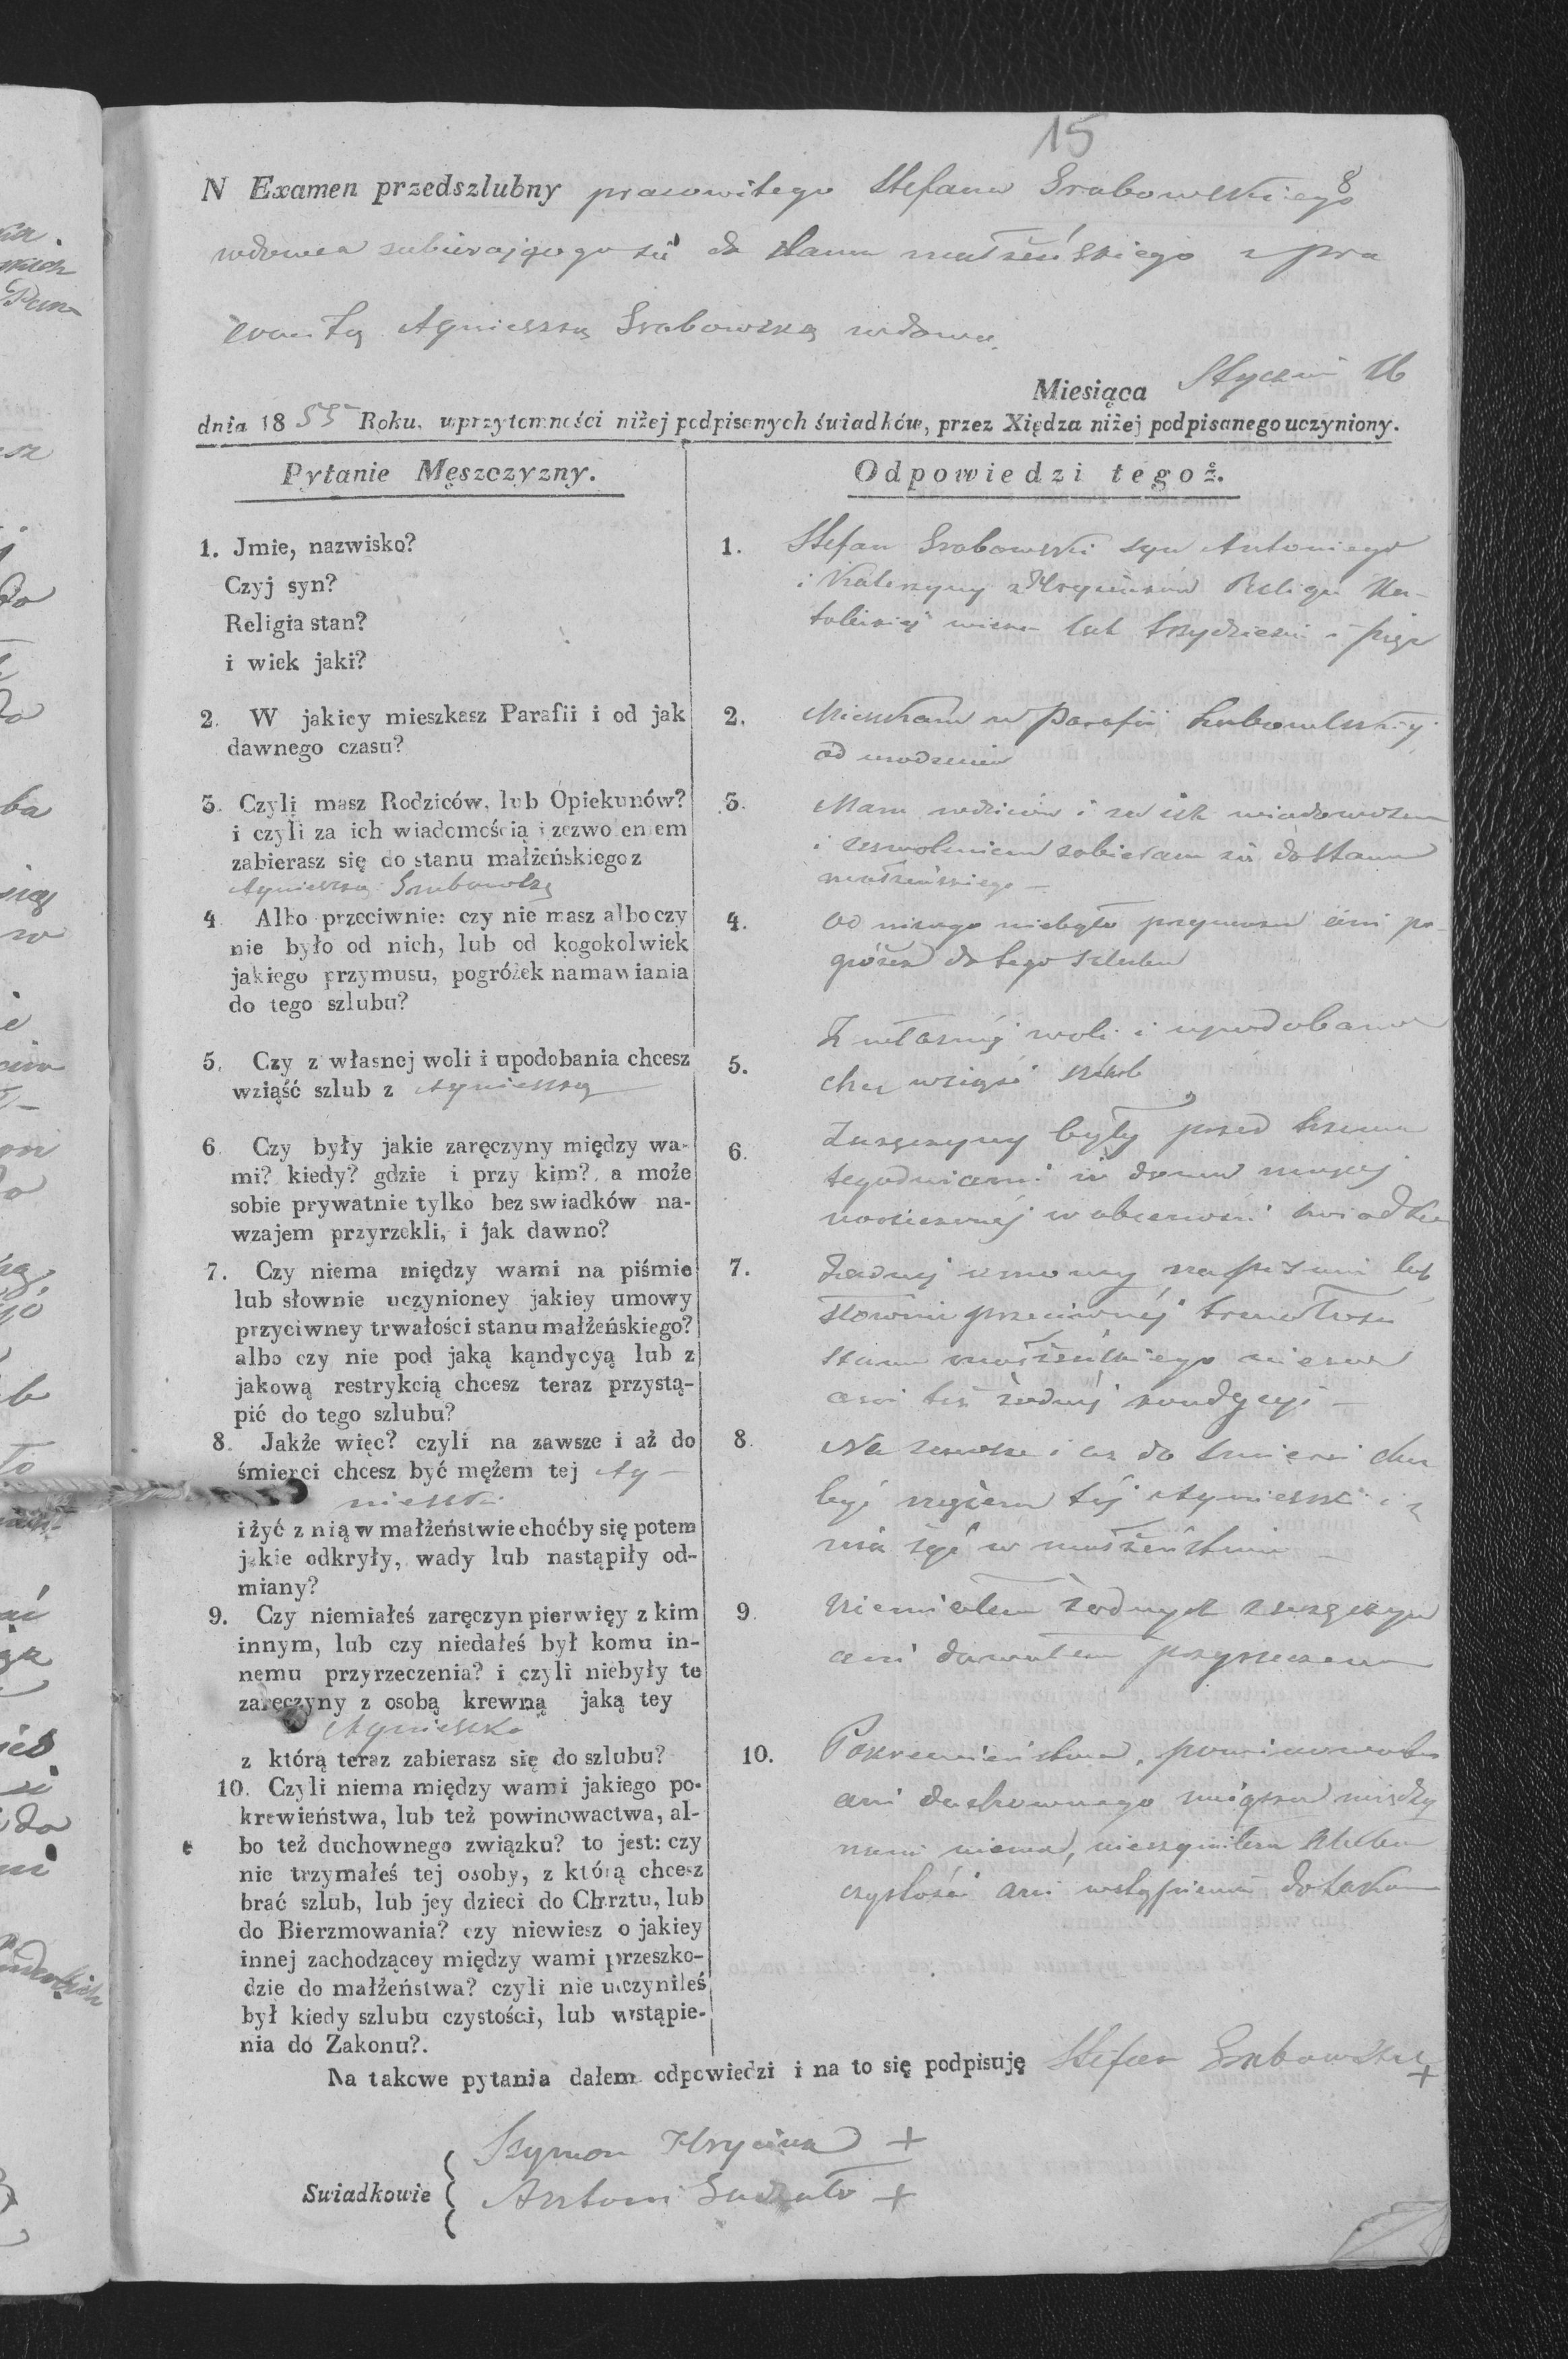 15
8
N Examen przedszlubny pracowitego Stefana Grabowskiego
wdowca zabierającego się do stanu małżeńskiego z pra
cowitą Agnieszką Grabowską wdową
Miesiąca Stycznia 16
dnia 1855 Roku, w przytomności niżej podpisanych świadków, przez Xiędza niżej podpisanego uczyniony.
Pytanie Męszczyzny.
1. Jmie, nazwisko?
Czyj syn?
Religia stan?
i wiek jaki?
2. W jakiey mieszkasz Parafii i od jak
dawnego czasu?
3. Czyli masz Rodziców, lub Opiekunów?
i czyli za ich wiadomością i zezwoleniem
zabierasz się do stanu małżeńskiego z
Agnieszką Grabowską
4 Albo przeciwnie: czy nie masz albo czy
nie było od nich, lub od kogokolwiek
jakiego przymusu, pogróżek namawiania
do tego szlubu?
5. Czy z własnej woli i upodobania chcesz
wziąść szlub z Agnieszką
6. Czy były jakie zaręczyny między wa-
mi? kiedy? gdzie i przy kim? a może
sobie prywatnie tylko bez swiadków na-
wzajem przyrzekli, i jak dawno?
7. Czy niema między wami na piśmie
lub słownie uczynioney jakiey umowy
przyciwney trwałości stanu małżeńskiego?
albo czy nie pod jaką kąndycyą lub z
jakową restrykcią chcesz teraz przystą-
pić do tego szlubu?
8. Jakże więc? czyli na zawsze i aż do
śmierci chcesz być mężem tej Ag-
nieszki
i żyć z nią w małżeństwie choćby się potem
jakie odkryły, wady lub nastąpiły od-
miany?
9. Czy niemiałeś zaręczyn pierwięy z kim
innym, lub czy niedałeś był komu in-
nemu przyrzeczenia? i czyli niebyły te
zaręczyny z osobą krewną jaką tey
Agnieszka
z którą teraz zabierasz się do szlubu?
10. Czyli niema między wami jakiego po-
krewieństwa, lub też powinowactwa, al-
bo też duchownego związku? to jest: czy
nie trzymałeś tej osoby, z którą chcesz
brać szlub, lub jey dzieci do Chrztu, lub
do Bierzmowania? czy niewiesz o jakiey
innej zachodzącey między wami przeszko-
dzie do małżeństwa? czyli nie uczyniłeś
był kiedy szlubu czystości, lub wstąpie-
nia do Zakonu?.
Odpowiedzi tegoż.
1. Stefan Grabowski syn Antoniego
i Katerzyny z Religii Ka-
tolickiej lat trzydzieści i pięć
2. Mieszkam w Parafii
od urodzenia
3. Mam rodziców i za ich wiadomością
i zezwoleniem zabieram się do stanu
małżeńskiego
4. Od nikogo niebyło przymusu ani po-
gróżek do tego szlubu
5. Z własnej woli i upodobania
chcę wziąść szlub
6. Zaręczyny były przed trzema
tygodniami w domu
w obecności świadków
7. Żadnej umowy na piśmie lub
słownie przeciwnej trwałości
stanu małżeńskiego niema
ani też żadnej kondycyi
8. Na zawsze i aż do śmierci chcę
być mężem tej Agnieszki i z
nią żyć w małżeństwie
9. Niemiałem żadnych zaręczyn
ani dawałem przyrzeczenia
10. Pokrewieństwa, powinowactwa
ani duchownego związku między
nami niema, nieczyniłem szlubu
czystości ani wstąpienia do zakonu
Na takowe pytania dałem odpowiedzi i na to się podpisuję Stefan Grabowski +
Swiadkowie
Szymon Hryciuk +
Antoni +